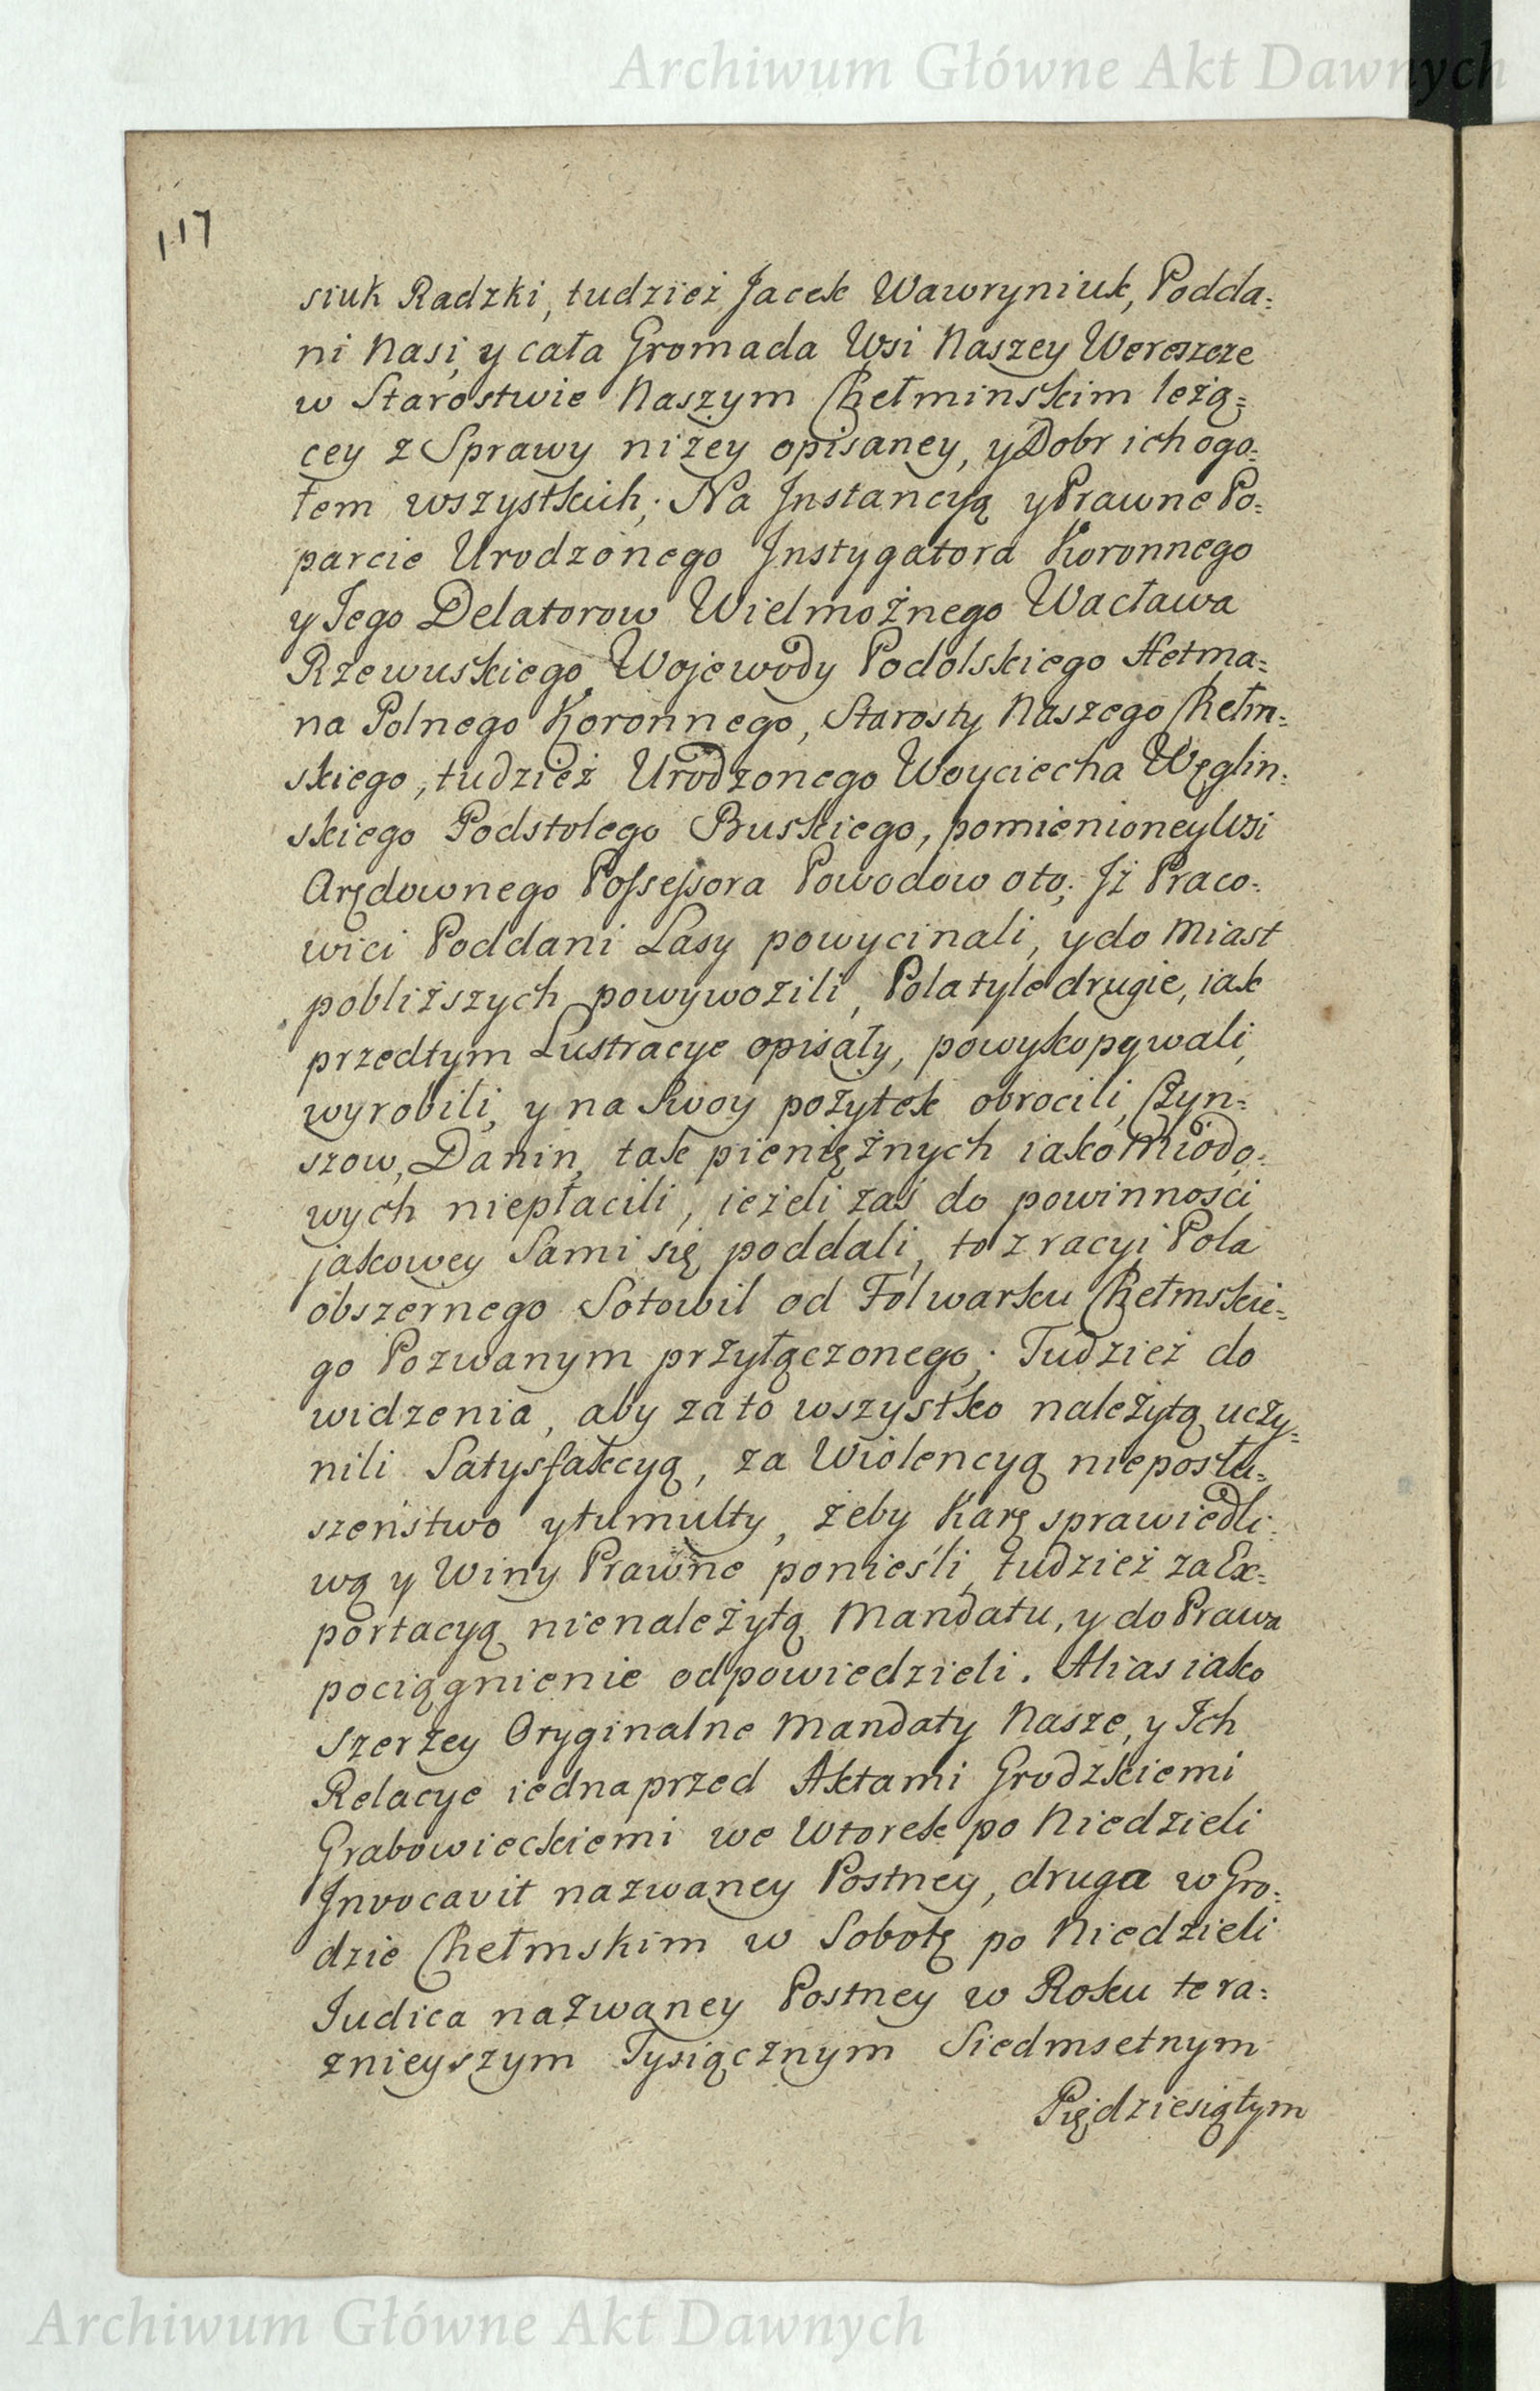 Archiwum Główne Akt Dawnych
117
siuk Radzki, tudzież Jacek Wawryniuk, Podda=
ni Nasi, y cała Gromada Wsi Naszey Wereszcze
w Starostwie Naszym Chełminskim leżą=
cey z Sprawy niżey opisaney, y Dobr ich ogo=
łem wszystkich; Na Instancyą y Prawne Po=
parcie Urodzonego Instygatora Koronnego
y Jego Delatorow Wielmożnego Wacława
Rzewuskiego Wojewody Podolskiego Hetma=
na Polnego Koronnego, Starosty Naszego Chełm=
skiego, tudzież Urodzonego Woyciecha Węglin=
skiego Podstolego Buskiego, pomienioney Wsi
Arędownego Possessora Powodow oto; Iż Praco=
wici Poddani Lasy powycinali, y do Miast
pobliższych powywozili, Pola tyle drugie, iak
przedtym Lustracye opisały, powykopywali,
wyrobili, y na Swoy pożytek obrocili, Czyn=
szow, Danin, tak pieniężnych iako Miodo=
wych niepłacili, ieżeli zaś do powinnosci
jakowey Sami się poddali, to z racyi Pola
obszernego Sotowil od Folwarku Chełmskie=
go Pozwanym przyłączonego; Tudzież do
widzenia, aby za to wszystko należytą uczy=
nili Satysfakcyą, za Wiolencyą nieposłu=
szeństwo y tumulty, żeby Karę sprawiedli=
wą y Winy Prawne ponieśli, tudzież za Ex=
portacyą nienależytą Mandatu, y do Prawa
pociągnienie odpowiedzieli. Alias iako
szerzey Oryginalne Mandaty Nasze, y Ich
Relacye iedna przed Aktami Grodzkiemi
Grabowieckiemi we Wtorek po Niedzieli
Invocavit nazwaney Postney, druga w Gro=
dzie Chełmskim w Sobotę po Niedzieli
Judica nazwaney Postney w Roku tera=
znieyszym Tysiącznym Siedmsetnym
Piędziesiątym
Archiwum Główne Akt Dawnych